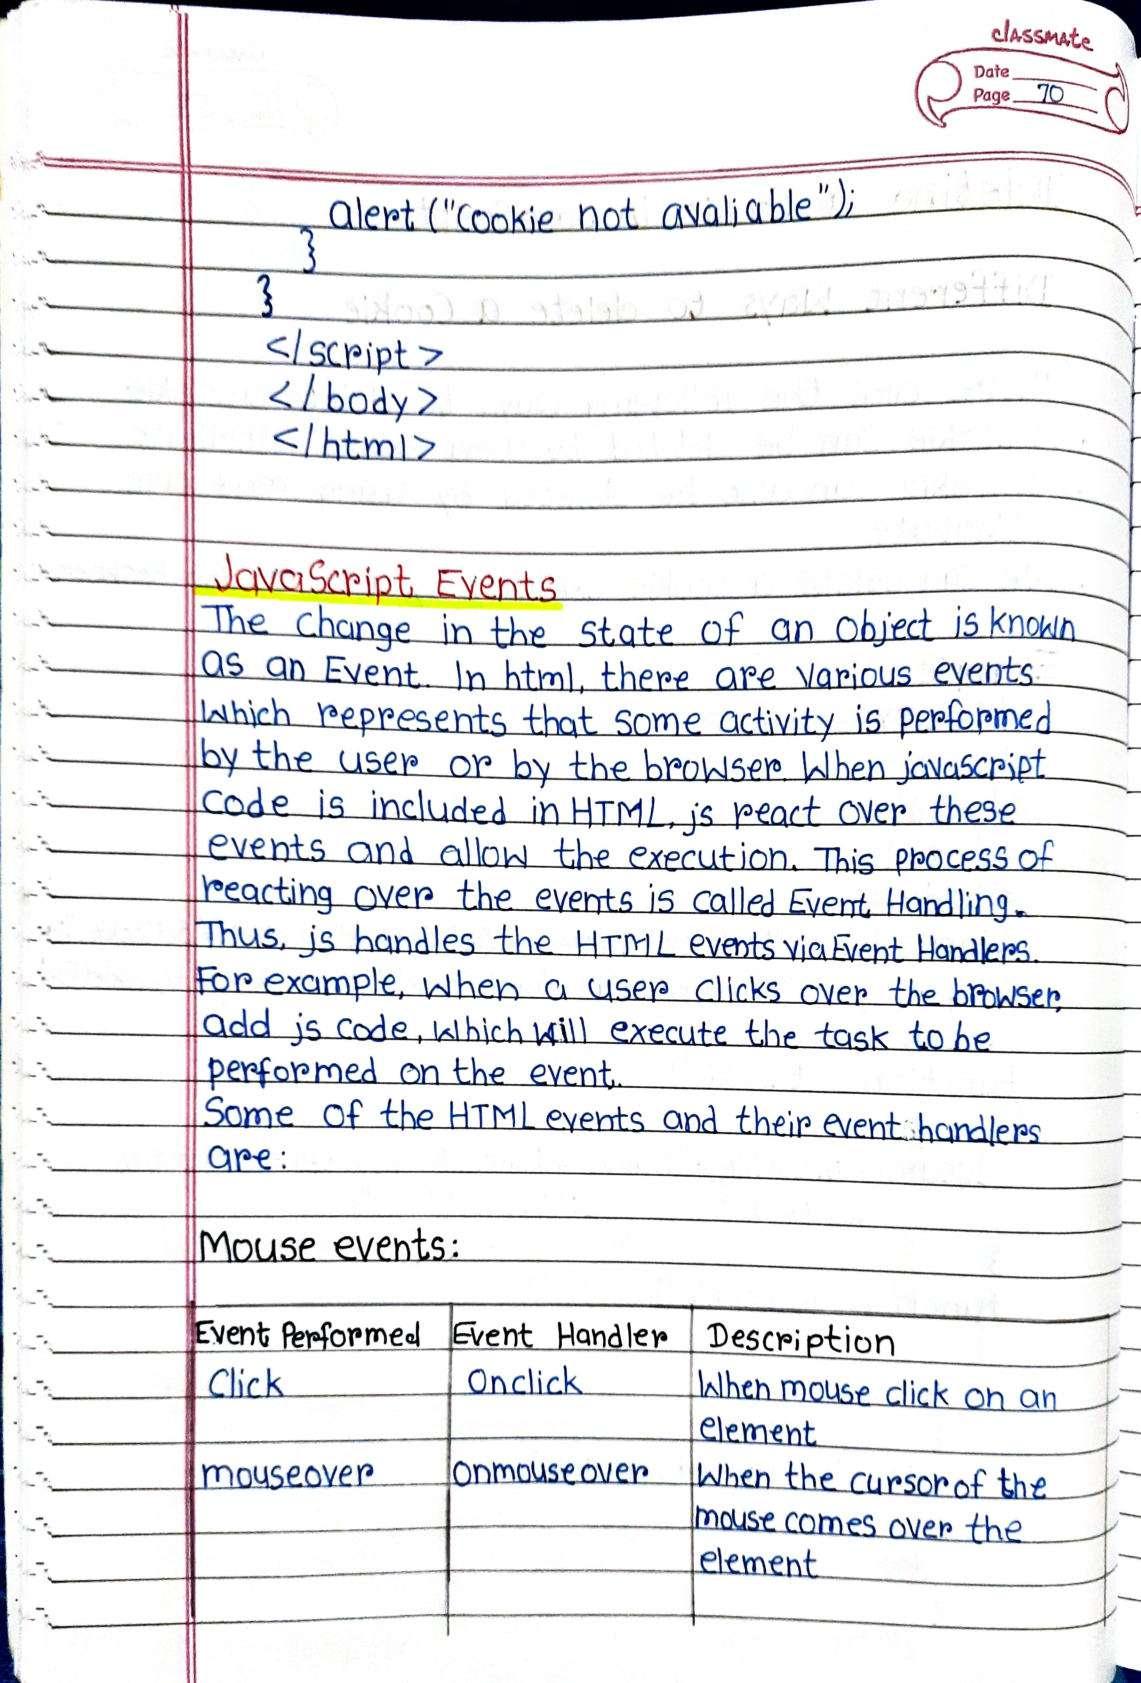 classmate
Date
Page 70
alert ("Cookie not avaliable");
}
}
</script>
</body>
</html>
JavaScript Events
The change in the state of an object is known
as an Event. In html, there are various events
which represents that some activity is performed
by the user or by the browser. When javascript
code is included in HTML, js react over these
events and allow the execution. This process of
reacting over the events is called Event Handling.
Thus, js handles the HTML events via Event Handlers.
For example, when a user clicks over the browser,
add js code, which will execute the task to be
performed on the event.
Some of the HTML events and their event handlers
are:
Mouse events:
Event Performed Event Handler Description
Click Onclick When mouse click on an
element
mouseover onmouseover When the cursor of the
mouse comes over the
element